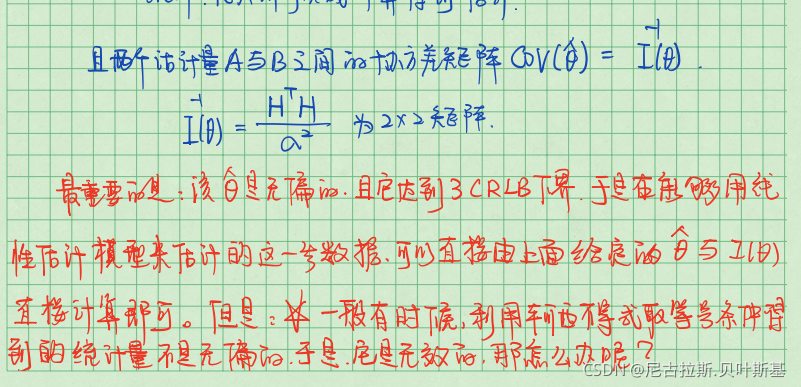 且两个估计量A与B之间的协方差矩阵 COV(θ̂) = I⁻¹(θ).
I⁻¹(θ) = HᵀH / a² 为2×2矩阵.
最重要的是:该θ̂是无偏的.且它达到了CRLB下界.于是在能够用线
性估计模型来估计的这一类数据.可以直接由上面给定的θ̂与I(θ)
直接计算即可。但是: 一般有时候,利用柯西不等式取等号条件得
到的统计量不是无偏的.于是.它是无效的.那怎么办呢?
CSDN @尼古拉斯.贝叶斯基